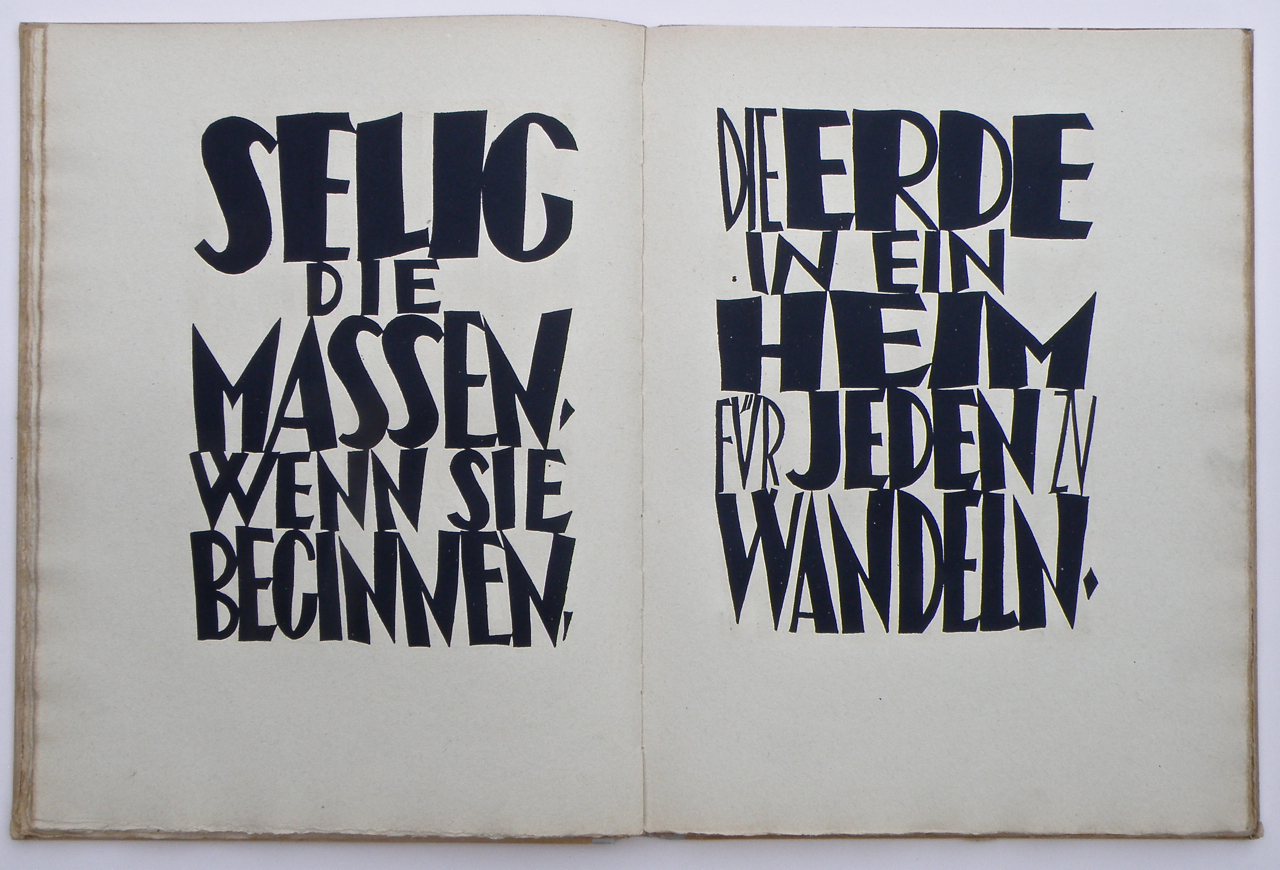 SELIG
DIE
MASSEN,
WENN SIE
BEGINNEN,
DIE ERDE
IN EIN
HEIM
FÜR JEDEN ZU
WANDELN.